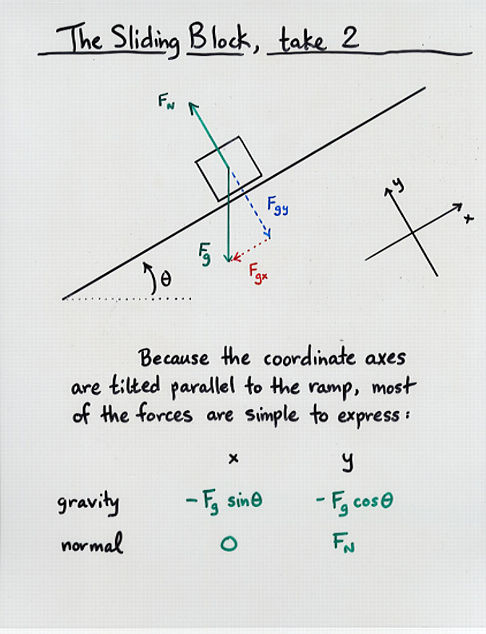 The Sliding Block, take 2
F_N
y
x
F_gy
F_g
F_gx
θ
Because the coordinate axes
are tilted parallel to the ramp, most
of the forces are simple to express:
x y
gravity -F_g sinθ -F_g cosθ
normal 0 F_N